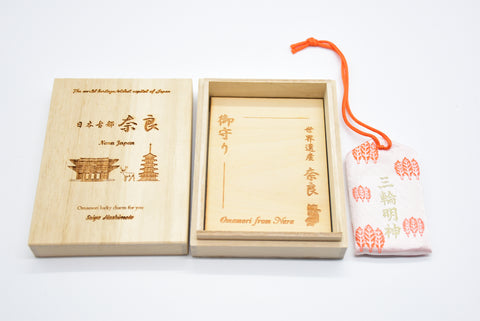 The world heritage/oldest capital of Japan
日本古都 奈良
Nara Japan
Omamori lucky charm for you
Seiya Hashimoto
御守り
世界遺産 奈良
Omamori from Nara
三輪明神